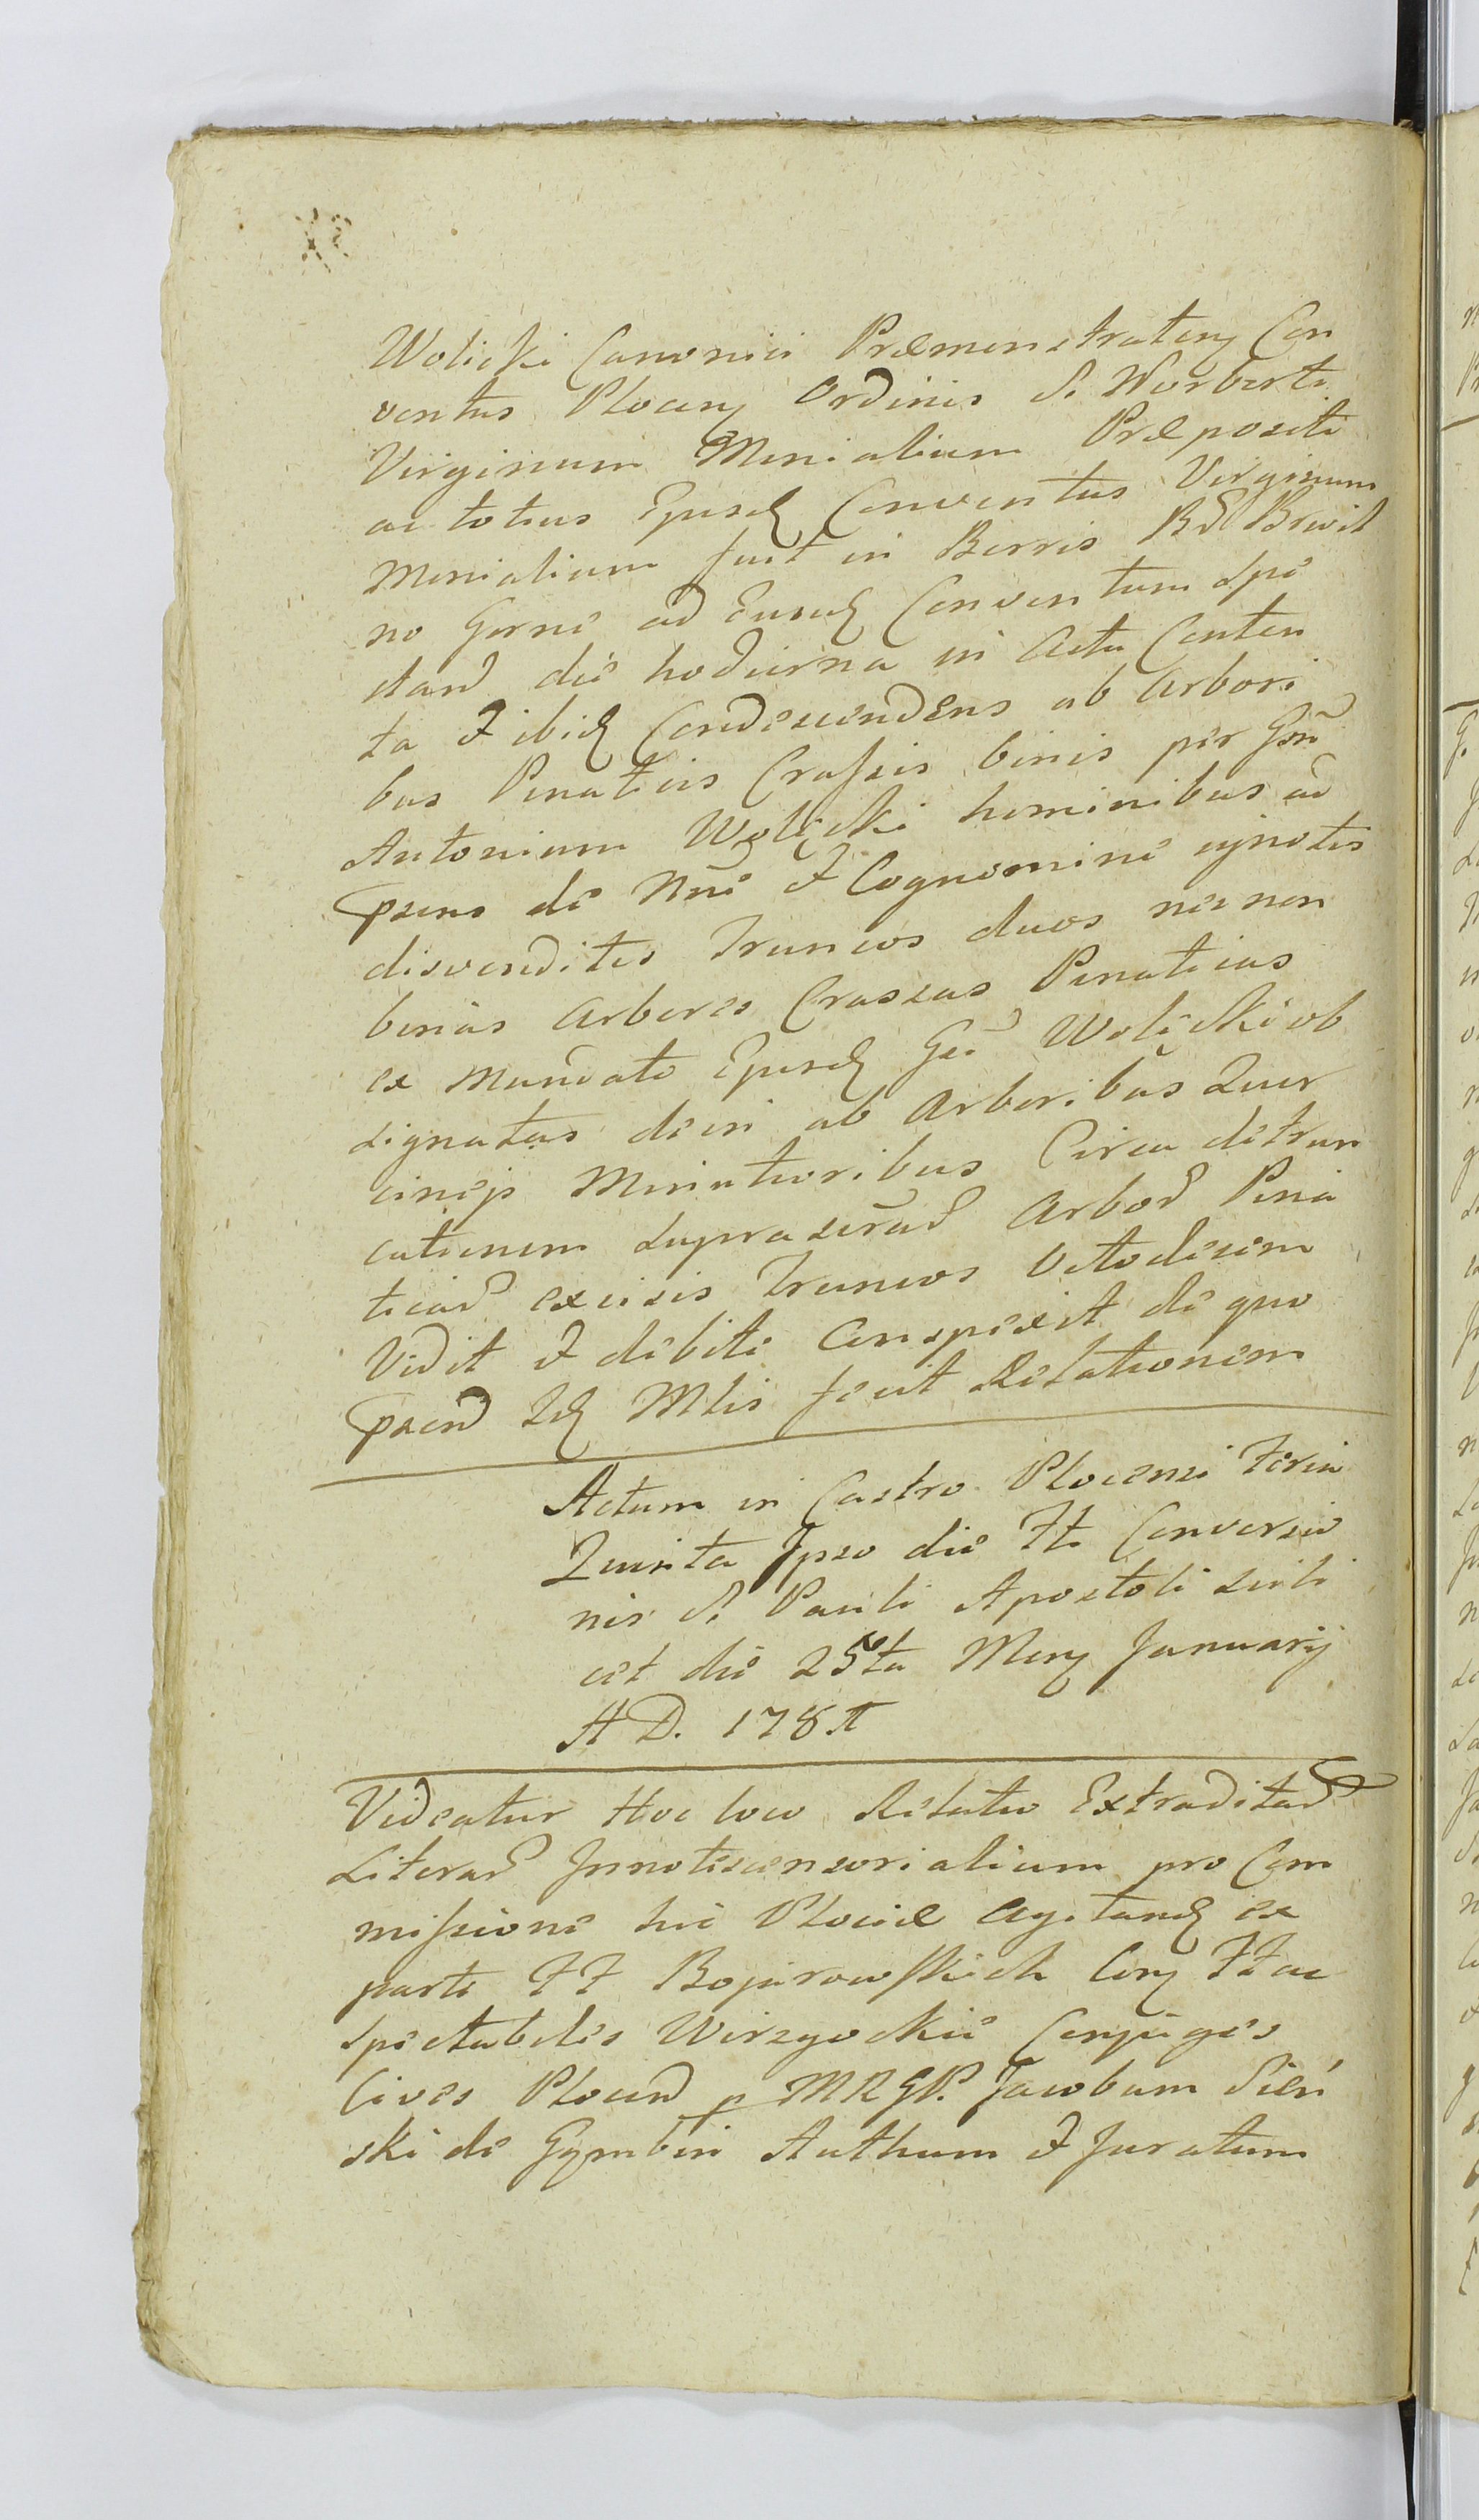 Wolicki Canonici Præmonstraten Con
ventus Plocen Ordinis S. Norberti
Virginum Monialium Præpositi
ac totius Ejusd Conventus Virginum
Monialium fuit in Bonis Brwil
no Gorne ad Eund Conventum Spe
ctand die hodierna in Actu Conten
ta & ibid Condescendens ab Arbori
bus Pinaticis Crassis binis per Gsm
Antonium Wolicki hominibus ad
præns de Nne & Cognomine ignotis
disvenditis Truncos duos necnon
binas Arbores Crassas Pinaticas
ex Mandato Ejusd Gsi Wolicki ob
signatas dein ab Arboribus Quer
cineis Minutioribus Circa detrun
cationem suprascrad Arbor Pina
ticar excisis Truncos Octodecim
Vidit & debite Conspexit de quo
præsnd Id Mlis fecit Relationem
Actum in Castro Plocensi Feria
Quinta Ipso die Fti Conversio
nis S. Pauli Apostoli scili
cet die 25ta Mens Januarij
A D. 178
Videatur Hoc loco Relatio Extraditar
Literar Innotescensorialium pro Com
missione hic Plociæ Agitand ex
parte FF Bojarowskich Con FF ac
Spectabiles Wirzgockie Conjuges
Cives Plocen p MRGP. Jacobum Sień
ski de Gymbin Authum & Juratum